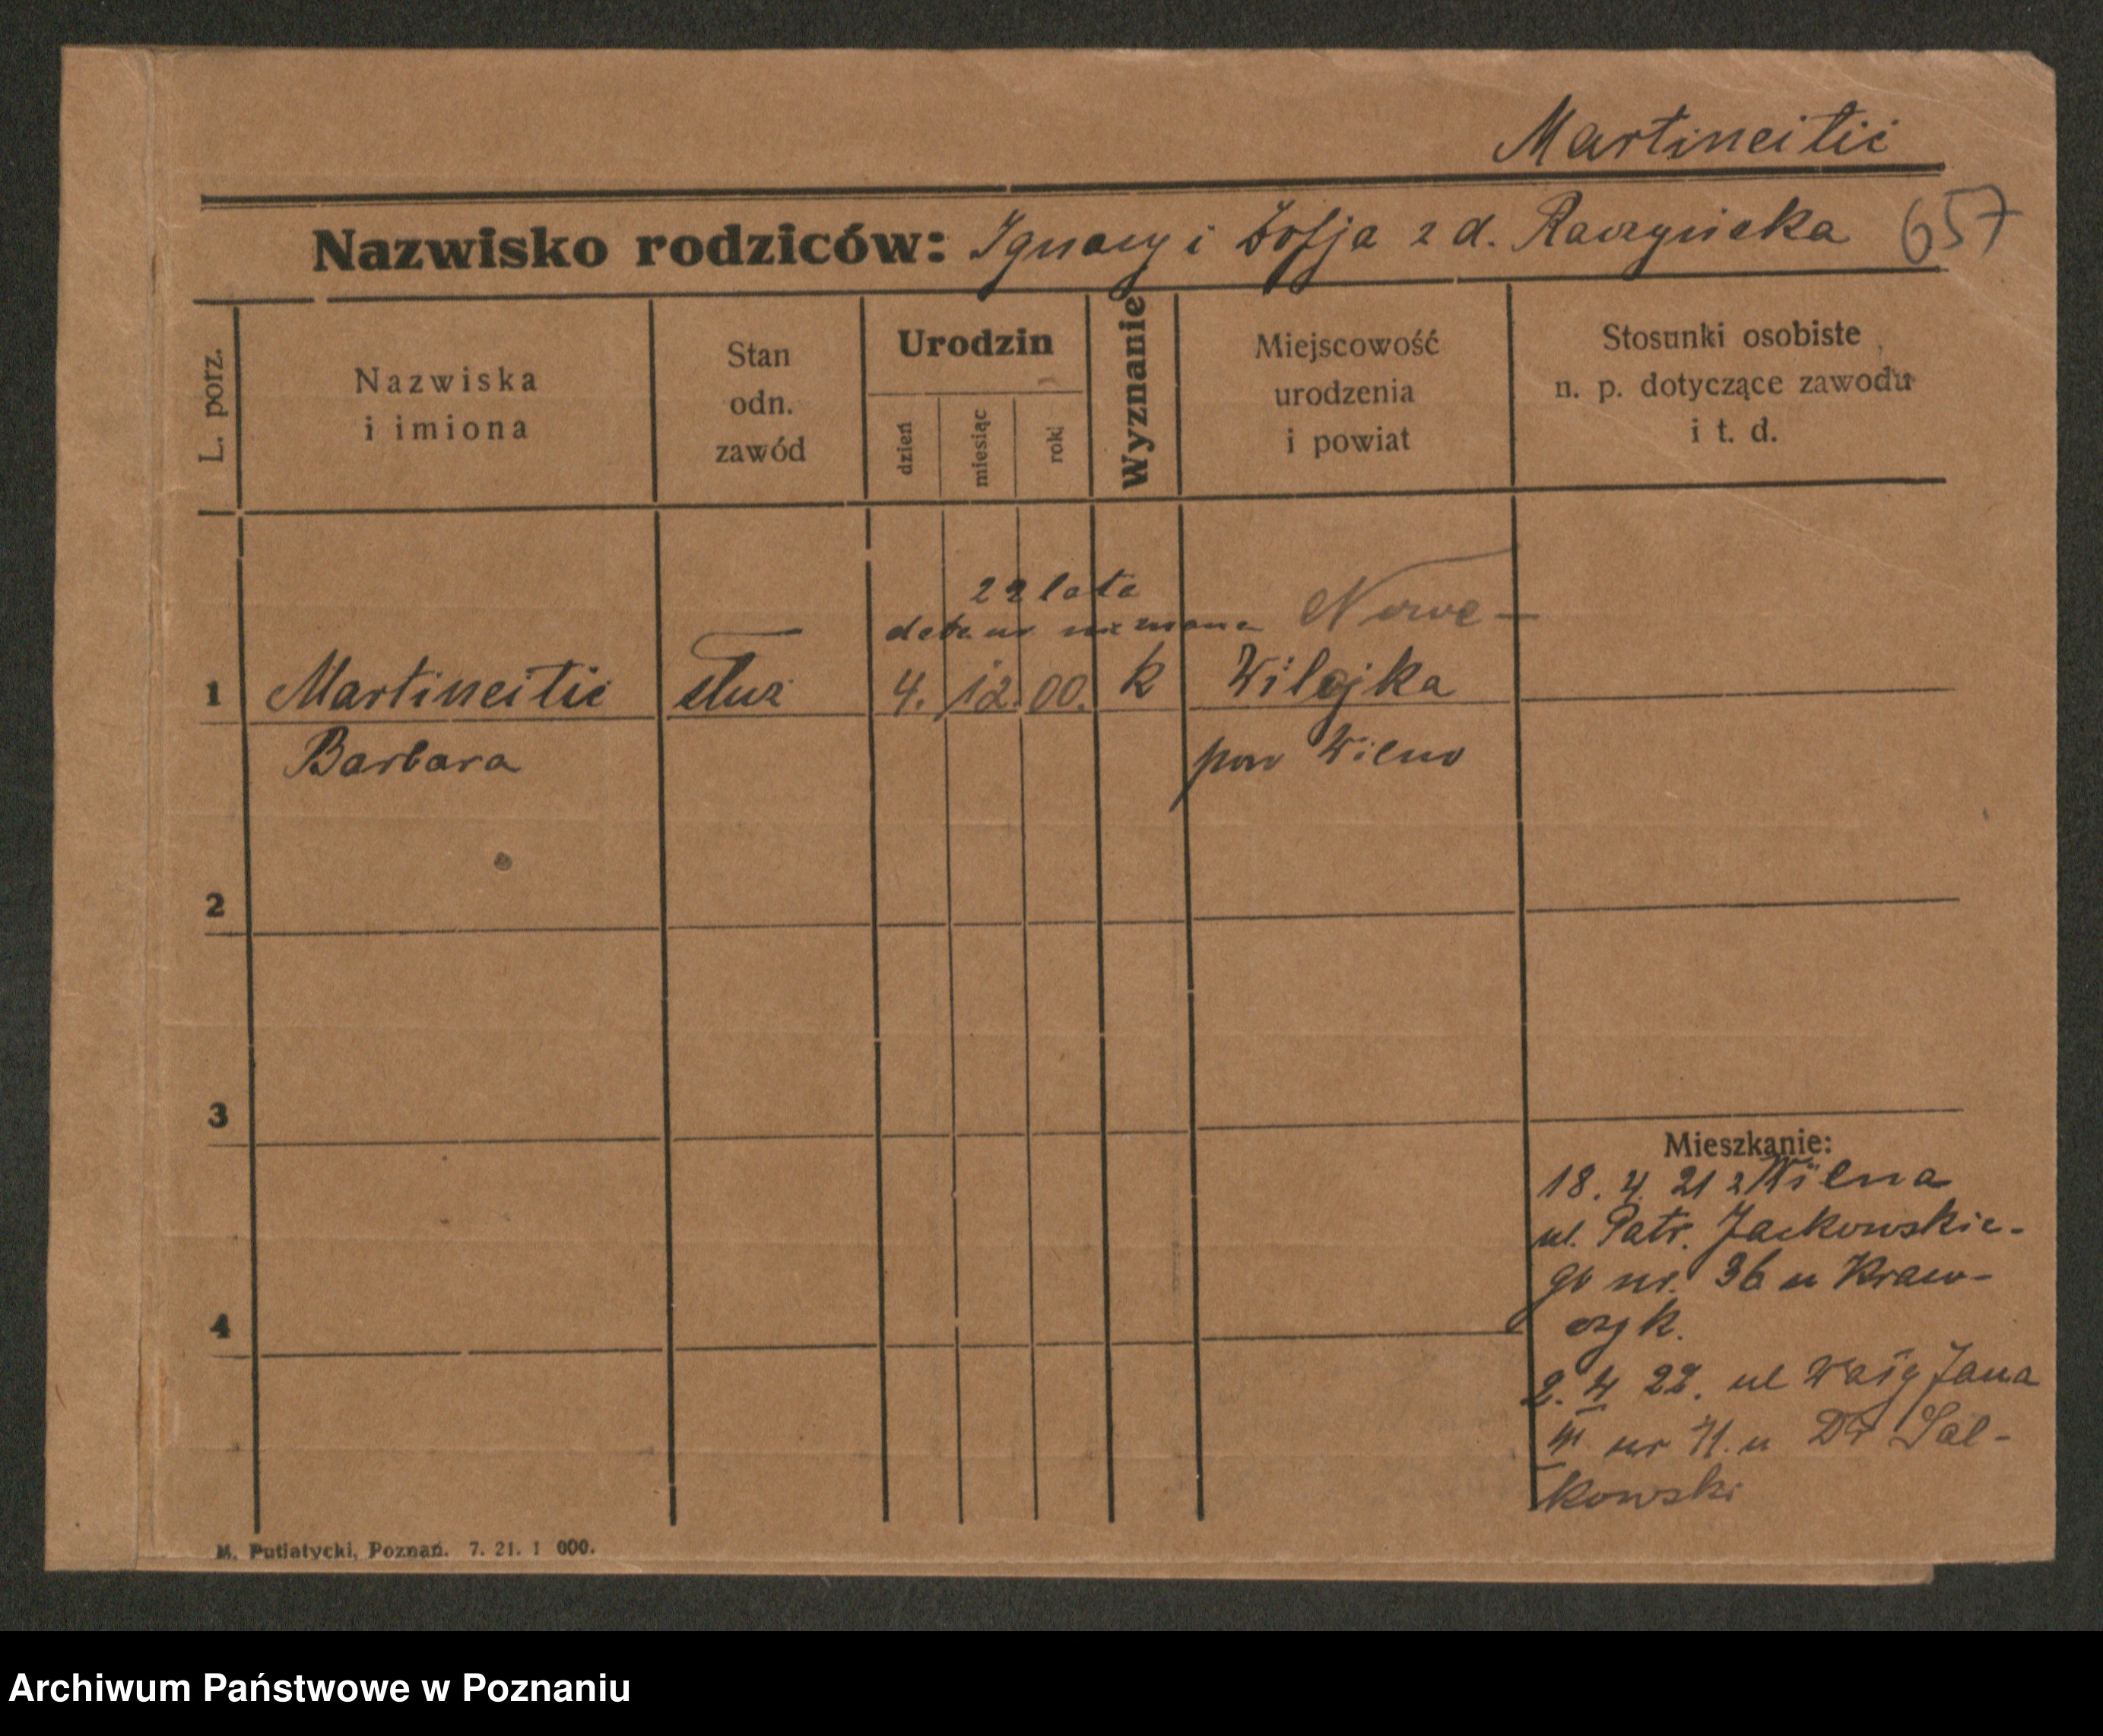 Martineitić
Nazwisko rodziców: Ignacy i Zofja z d. Raczyńska 657
L. porz.
Nazwiska
i imiona
Stan
odn.
zawód
Urodzin
dzień
miesiąc
rok
Wyznanie
Miejscowość
urodzenia
i powiat
Stosunki osobiste
n. p. dotyczące zawodu
i t. d.
22 lata
nieznana Nowe-
1 Martineitić służ 4. 12. 00. k Wilejka
Barbara pow Wilno
2
3
4
Mieszkanie:
18. 4. 21 z Wilna
ul. Patr. Jackowskie-
go nr. 36 u Kraw-
czyk.
2. 4 22. ul Jana
III nr 11. u Dr Sal-
kowski
M. Putiatycki, Poznań. 7. 21. 1 000.
Archiwum Państwowe w Poznaniu